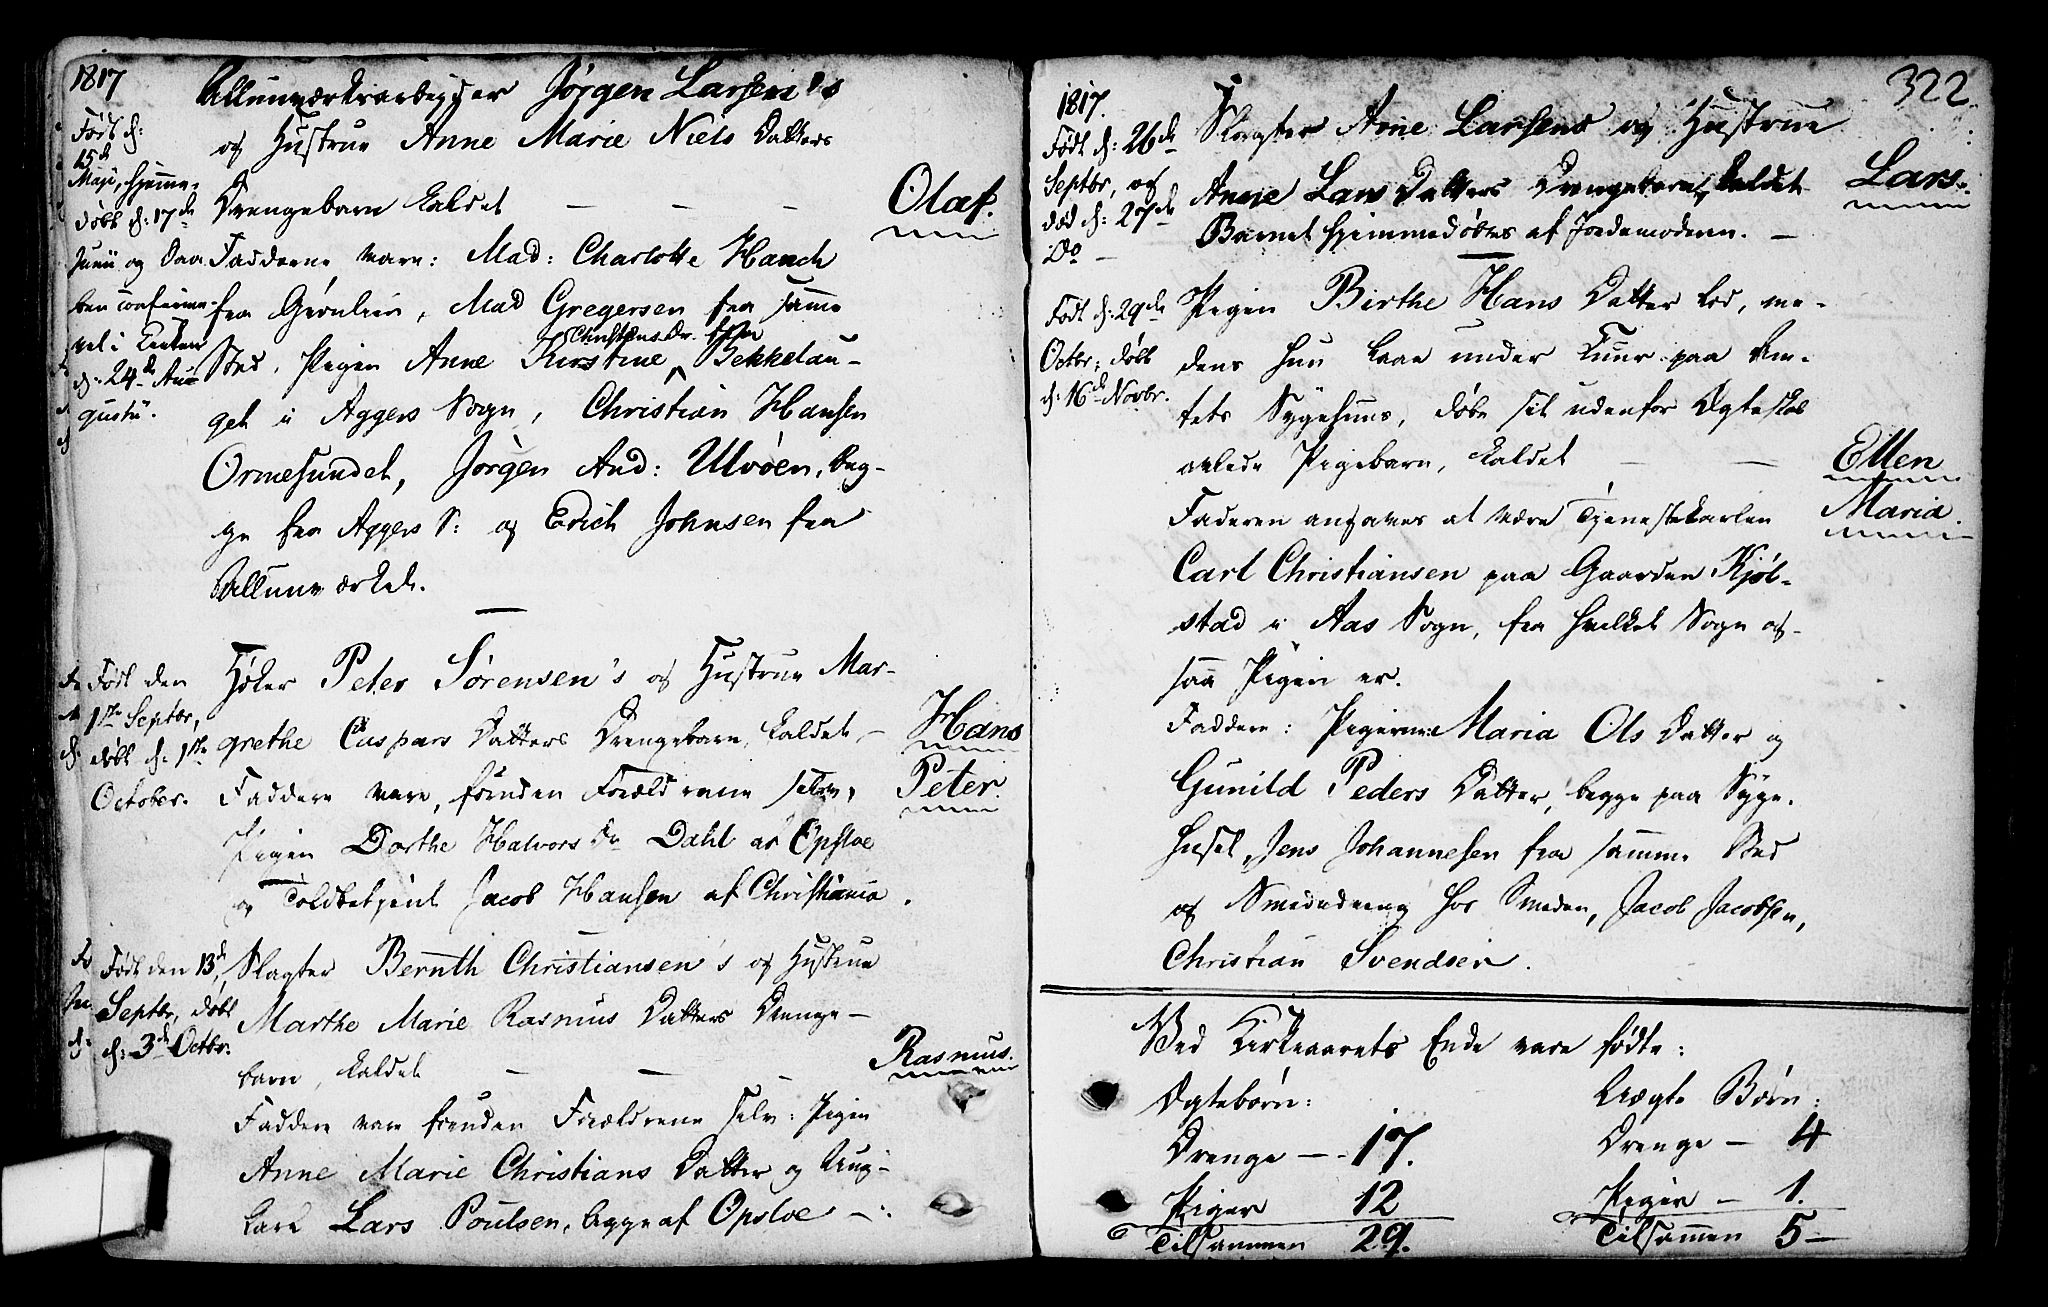 1817
Allunværksarbeyder Jørgen Larsen's
Født d:
15de
Maji, hjemme-
døbt d: 17de
Junii og Daa-
ben confirme-
ret i Kirken
d: 24de Au-
gustii.
og Hustrue Anne Marie Niels Datters
Drengebarn kaldet — — — Olaf.
Fadderne vare: Mad: Charlotte Hauch
fra Grønlien, Mad Gregersen fra samme
Sted, Pigen Anne Kirstine Christens Dr. fra Bekkelau-
get i Aggers Sogn, Christian Hansen
Ormesundet, Jørgen And: Ulvøen, beg-
ge fra Aggers S: og Erich Johnsen fra
Allunværket.
Født den
1ste Septbr,
døbt d: 1ste
October.
Høker Peter Sørensen's og Hustrue Mar-
grethe Caspars Datters Drengebarn, kaldet — Hans
Peter
Faddere vare, foruden Forældrene selv,
Pigen Dorthe Halvors Dr Dahl af Opsloe
og Toldbetjent Jacob Hansen af Christiania.
Født den 13de
Septbr, døbt
d: 3de Octbr.
Slagter Bernth Christiansen's og Hustrue
Marthe Marie Rasmus Datters Drenge-
barn, kaldet — — — Rasmus.
Faddere vare foruden Forældrene selv: Pigen
Anne Marie Christians Datter og Ung-
karl Lars Poulsen, begge af Opsloe —
322
1817.
Født d: 26de
Septbr, og
død d: 27de
Do —
Slagter Arne Larsens og Hustrue
Anne Lars Datters Drengebarn, kaldet Lars.
Barnet hjemmedøbtes af Jordemoderen. —
Født d: 29de
Octbr: døbt
d: 16de Novbr.
Pigen Birthe Hans Datter lod, me-
dens hun laae under Cuur paa Am-
tets Sygehuus, døbe sit udenfor Ægteskab
avlede Pigebarn, kaldet — — Ellen
Maria.
Faderen angaves at være Tjenestekarlen
Carl Christiansen paa Gaarden Kjøl-
stad i Aas Sogn, fra hvilket Sogn og-
saa Pigen er.
Faddere: Pigerne Maria Ols Datter og
Gunild Peders Datter, begge paa Syge-
huset, Jens Johannesen fra samme Sted
og Smededreng hos Smeden, Jacob Jacobsen,
Christian Svendsen.
Ved Kirkeaarets Ende vare fødte:
Ægtebørn:
Drenge — 17.
Piger 12
Tilsammen 29.
Uægte Børn:
Drenge — 4
Piger — 1.
Tilsammen 5 —